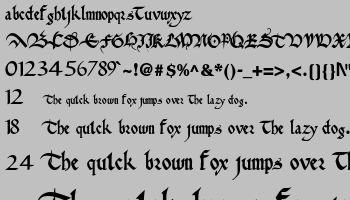 abcdefghijklmnopqrsTuvwxyz
ABCDEFGHIJKLMNOPQRSTUVWX
0123456789`~!@#$%^&*()-_+=>,<.{}[]!\
12 The quick brown fox jumps over The lazy dog.
18 The quick brown fox jumps over The lazy dog.
24 The quick brown fox jumps over T